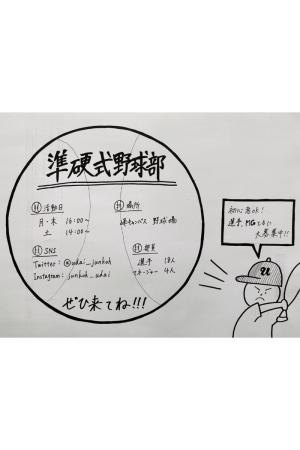 準硬式野球部
活動日
月・木 16:00〜
土 14:00〜
場所
峰キャンパス 野球場
SNS
Twitter: @udai_junkoh
Instagram: junkoh_udai
部員
選手
マネージャー 4人
ぜひ来てね!!!
初心者OK!
選手、MGともに
大募集中!!
U